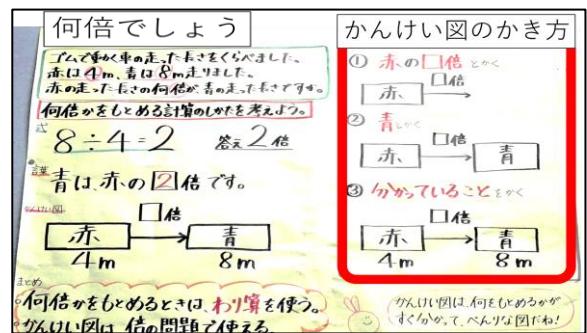 何倍でしょう
ゴムで動く車の走った長さをくらべました。
赤は4m、青は8m走りました。
赤の走った長さの何倍が、青の走った長さですか。
何倍かをもとめる計算のしかたを考えよう。
式
8÷4=2 答え2倍
言葉
青は、赤の2倍です。
かんけい図
□倍
赤 青
4m 8m
まとめ
何倍かをもとめるときは、わり算を使う。
かんけい図は、倍の問題で使える。
かんけい図のかき方
① 赤の□倍とかく
□倍
赤
② 青とかく
□倍
赤 青
③ 分かっていることをかく
□倍
赤 青
4m 8m
かんけい図は、何をもとめるかが
すぐ分かって、べんりな図だね!